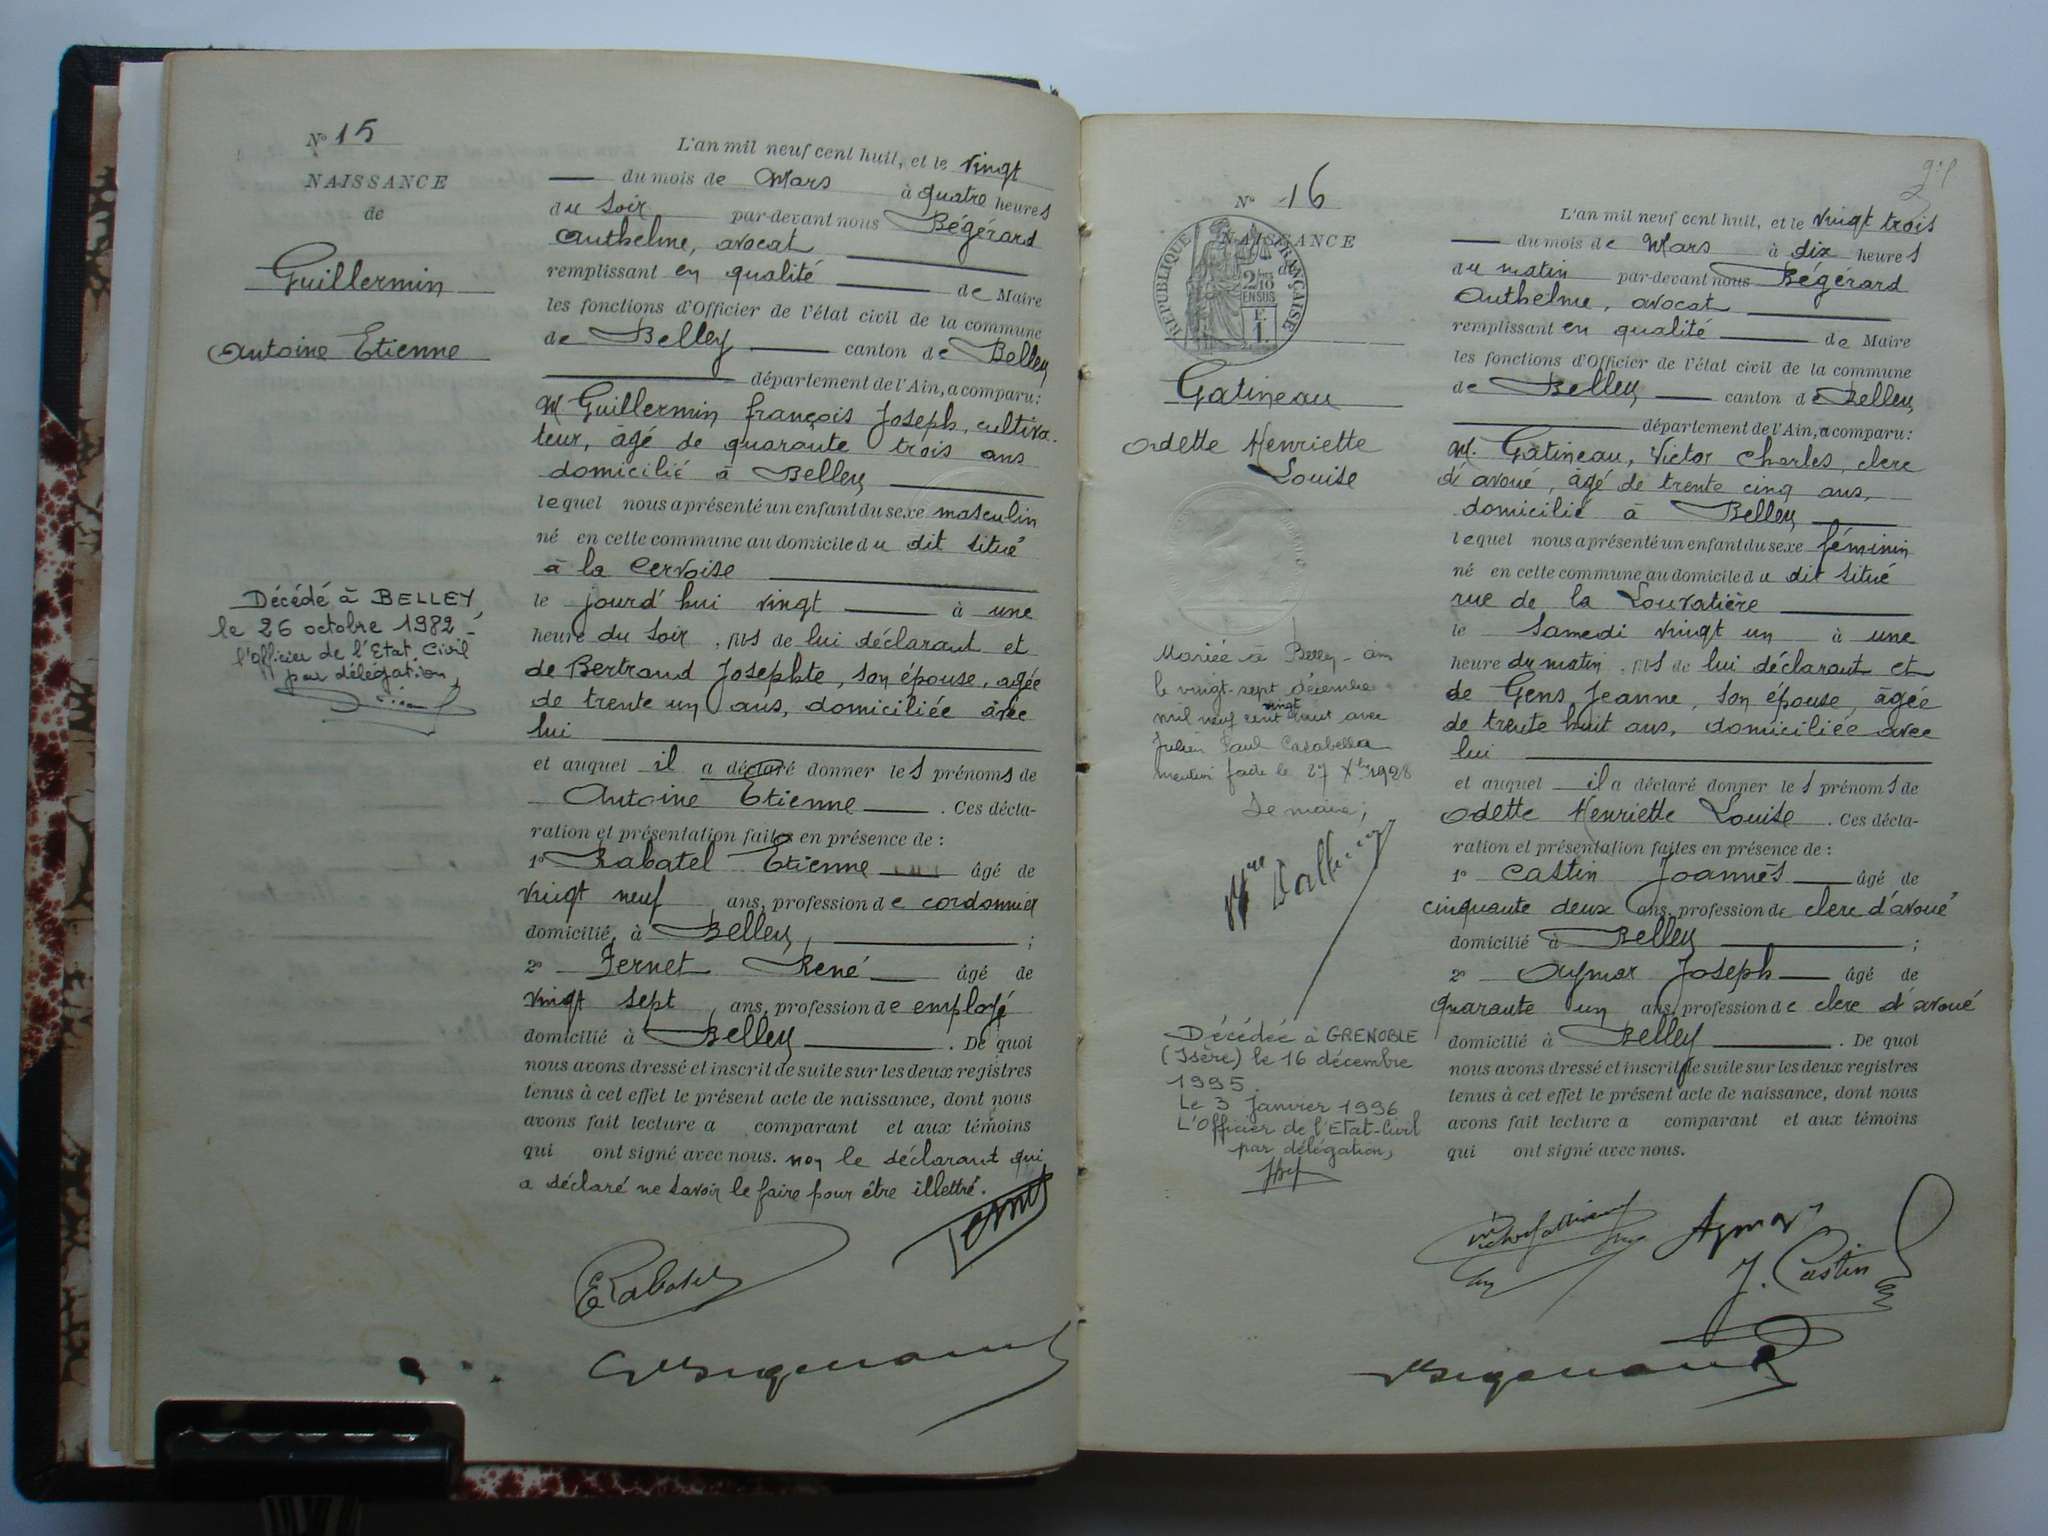 Nº 15
NAISSANCE
de
Guillermin
Antoine Etienne
Décédé à BELLEY,
le 26 octobre 1982 -
l'officier de l'Etat Civil
par délégation,
L'an mil neuf cent huit, et le vingt
du mois de Mars à quatre heures
du soir par-devant nous Bégérard
Anthelme, avocat
remplissant en qualité de Maire
les fonctions d'Officier de l'état civil de la commune
de Belley canton de Belley
département de l'Ain, a comparu:
M Guillermin françois Joseph, cultiva-
teur, âgé de quarante trois ans
domicilié à Belley
lequel nous a présenté un enfant du sexe masculin
né en cette commune au domicile du dit situé
à la Cervoise
le jourd'hui vingt à une
heure du soir, fils de lui déclarant et
de Bertrand Josephte, son épouse, agée
de trente un ans, domiciliée avec
lui
et auquel il a déclaré donner les prénoms de
Antoine Etienne. Ces décla-
ration et présentation faites en présence de :
1º Rabatel Etienne âgé de
vingt neuf ans, profession de cordonnier
domicilié à Belley, ;
2º Fernet René âgé de
vingt sept ans, profession de employé
domicilié à Belley. De quoi
nous avons dressé et inscrit de suite sur les deux registres
tenus à cet effet le présent acte de naissance, dont nous
avons fait lecture a comparant et aux témoins
qui ont signé avec nous. non le déclarant qui
a déclaré ne savoir le faire pour être illettré.
E Rabatel
Fernet
Nº 16
NAISSANCE
de
RÉPUBLIQUE FRANÇAISE
2/10
EN SUS
F.
1.
Gatineau
Odette Henriette
Louise
Mariée à Belley - ain
le vingt-sept décembre
mil neuf cent vingt huit avec
Julien Paul Casabella
mention faite le 27 Xbre 1928
Le maire,
Décédée à GRENOBLE
(Isère) le 16 décembre
1995.
Le 3 janvier 1996
L'Officier de l'Etat-Civil
par délégation,
L'an mil neuf cent huit, et le vingt trois
du mois de Mars à dix heures
du matin par-devant nous Bégérard
Anthelme, avocat
remplissant en qualité de Maire
les fonctions d'Officier de l'état civil de la commune
de Belley canton de Belley
département de l'Ain, a comparu:
M. Gatineau, Victor Charles, clerc
d'avoué, âgé de trente cinq ans,
domicilié à Belley
lequel nous a présenté un enfant du sexe féminin
né en cette commune au domicile du dit situé
rue de la Louvatière
le samedi vingt un à une
heure du matin, fils de lui déclarant et
de Gens Jeanne, son épouse, âgée
de trente huit ans, domiciliée avec
lui
et auquel il a déclaré donner les prénoms de
Odette Henriette Louise. Ces décla-
ration et présentation faites en présence de :
1º Castin Joannès âgé de
cinquante deux ans, profession de clerc d'avoué
domicilié à Belley ;
2º Aymar Joseph âgé de
quarante un ans, profession de clerc d'avoué
domicilié à Belley. De quoi
nous avons dressé et inscrit de suite sur les deux registres
tenus à cet effet le présent acte de naissance, dont nous
avons fait lecture a comparant et aux témoins
qui ont signé avec nous.
Aymar
J. Castin